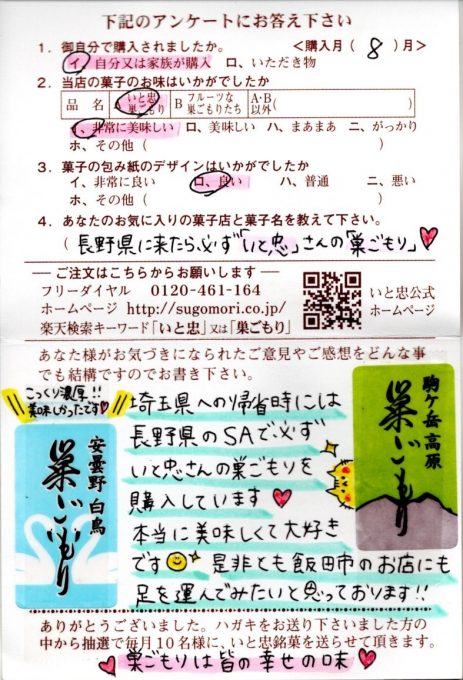 下記のアンケートにお答え下さい
1．御自分で購入されましたか。 <購入月（ 8 ）月>
イ、自分又は家族が購入 ロ、いただき物
2．当店の菓子のお味はいかがでしたか
品 名 A いと忠巣ごもり B フルーツな巣ごもりたち A・B以外（ ）
イ、非常に美味しい ロ、美味しい ハ、まあまあ ニ、がっかり
ホ、その他（ ）
3．菓子の包み紙のデザインはいかがでしたか
イ、非常に良い ロ、良い ハ、普通 ニ、悪い
ホ、その他（ ）
4．あなたのお気に入りの菓子店と菓子名を教えて下さい。
（ 長野県に来たら、必ず「いと忠」さんの「巣ごもり」♥
ご注文はこちらからお願いします
フリーダイヤル 0120-461-164
ホームページ http://sugomori.co.jp/
楽天検索キーワード「いと忠」又は「巣ごもり」
いと忠公式
ホームページ
あなた様がお気づきになられたご意見やご感想をどんな事
でも結構ですのでお書き下さい。
こっくり濃厚!!
美味しかったです♥
安曇野 白鳥
巣ごもり
埼玉県への帰省時には
長野県のSAで必ず
いと忠さんの巣ごもりを
購入しています♥
本当に美味しくて大好き
です😊 是非とも飯田市のお店にも
足を運んでみたいと思っております!!
駒ケ岳高原
巣ごもり
ありがとうございました。ハガキをお送り下さいました方の
中から抽選で毎月10名様に、いと忠銘菓を送らせて頂きます。
♥巣ごもりは皆の幸せの味♥